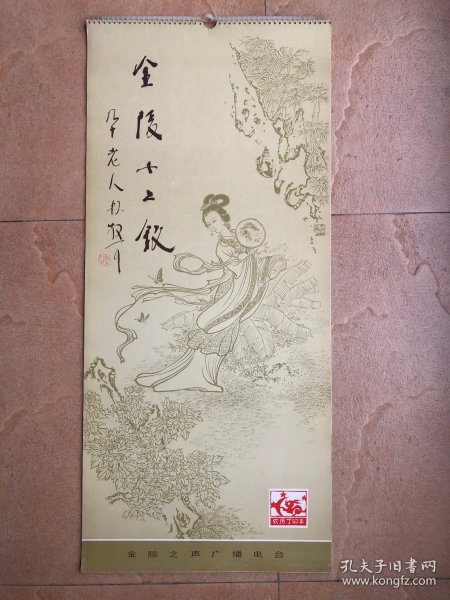 金陵十二钗
九十老人林散耳
农历丁卯年
金陵之声广播电台
孔夫子旧书网
www.kongfz.com